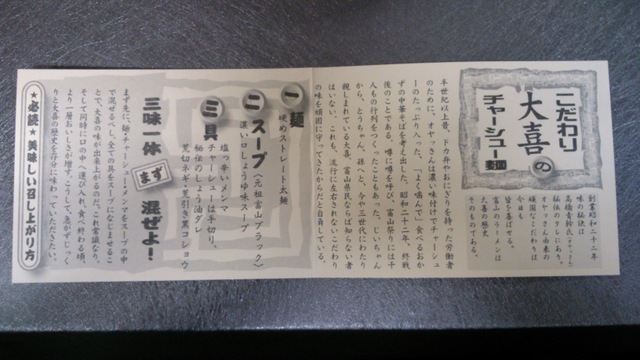 こだわり
大喜の
チャーシュー麺
創業昭和二十二年
味の秘訣は
秘伝のタレにあり。
オヤッさん由来の
頑固なこだわりは
今日も
皆を喜ばせる。
富山のラーメンは
大喜の歴史
そのものである。
半世紀以上昔、ドカ弁やおにぎりを持った労働者
のために、オヤッさんは濃い味付けでチャーシュ
ーのたっぷり入った、「よく噛んで」食べるおか
ずの中華そばを考え出した。昭和二十二年、終戦
後のことである。噂に噂を呼び、富山祭りには千
人もの行列をつくったこともあった。じいちゃん
から、とうちゃん、孫へと、今や三世代にわたり
親しまれている大喜。富山県民ならば知らない者
はいない。これも、流行に左右されない、こだわり
の味を頑固に守ってきたからだと自負している。
一 麺
硬めストレート太麺
二 スープ〈元祖富山ブラック〉
濃い口しょうゆ味スープ
三 具
塩っ辛いメンマ
チャーシューは手切り、
秘伝のしょう油ダレ
荒切ネギ・荒引き黒コショウ
三味一体
まず
混ぜよ!
まず先に、麺とチャーシュー・メンマなどをスープの中
で混ぜるべし。全ての具をスープになじませるこ
とで、大喜の味が出来上がるのだ。これ常識なり。
そして同時に口の中へ運び入れ、食べ終わる頃、
より一層おいしさが増す。こうして、急がずじっく
りと大喜の歴史を存分に味わっていただきたい。
★必読★美味しい召し上がり方